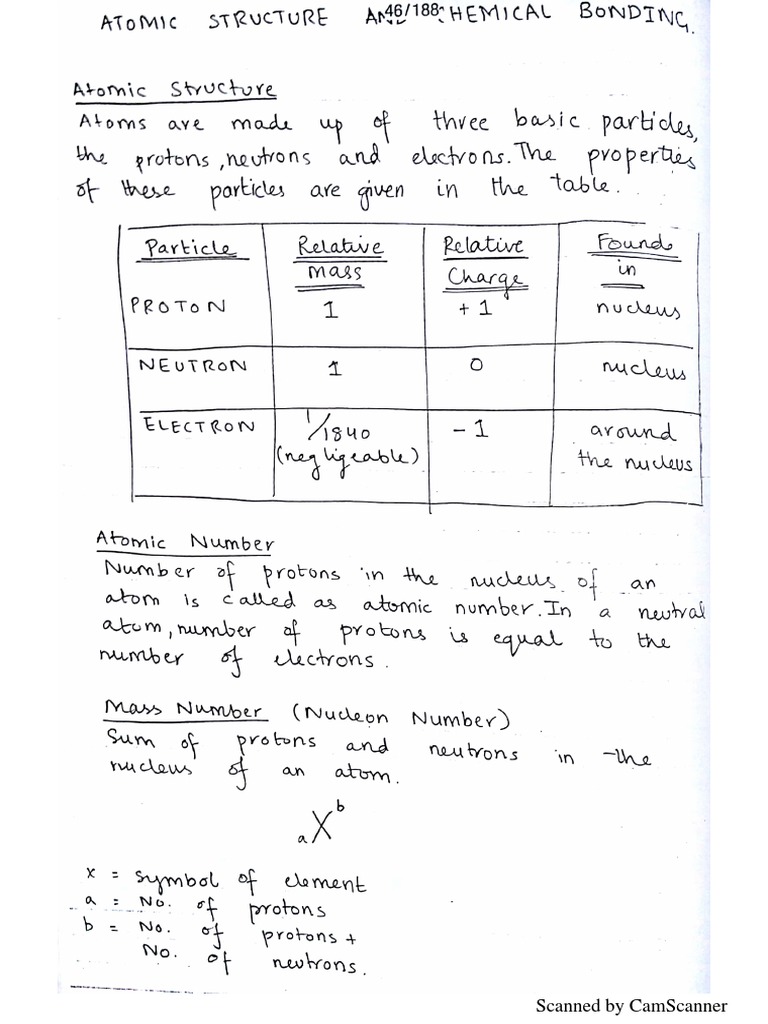 ATOMIC STRUCTURE AN 46/188 CHEMICAL BONDING.
Atomic Structure
Atoms are made up of three basic particles,
the protons, neutrons and electrons. The properties
of these particles are given in the table.
Particle Relative Mass Relative Charge Found in
PROTON 1 +1 nucleus
NEUTRON 1 0 nucleus
ELECTRON 1/1840 (negligeable) -1 around the nucleus
Atomic Number
Number of protons in the nucleus of an
atom is called as atomic number. In a neutral
atom, number of protons is equal to the
number of electrons.
Mass Number (Nucleon Number)
Sum of protons and neutrons in the
nucleus of an atom.
aXb
x = symbol of element
a = No. of protons
b = No. of protons +
No. of neutrons.
Scanned by CamScanner